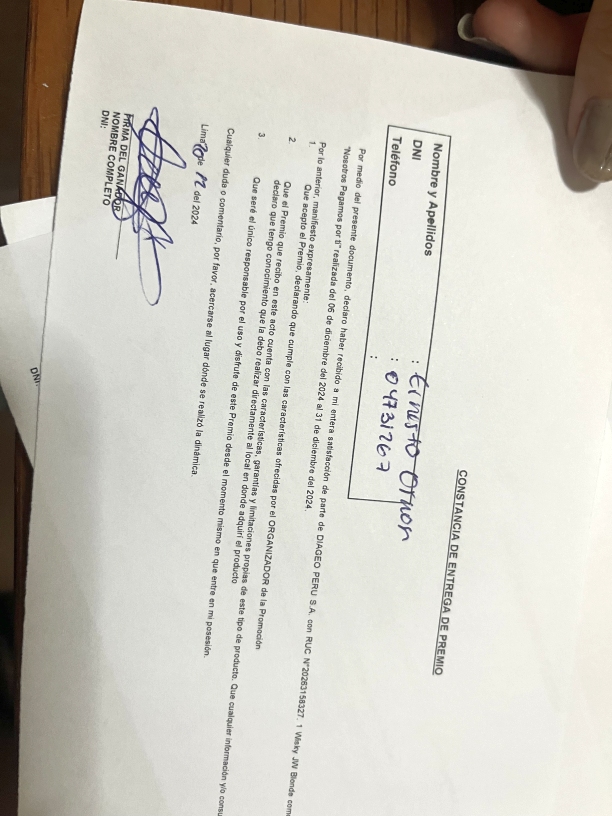 CONSTANCIA DE ENTREGA DE PREMIO
Nombre y Apellidos : Ernesto
DNI : 04731267
Teléfono :
Por medio del presente documento, declaro haber recibido a mi entera satisfacción de parte de DIAGEO PERU S.A. con RUC N°20263158327, 1 Wisky JW Blonde com
"Nosotros Pagamos por ti" realizada del 06 de diciembre del 2024 al 31 de diciembre del 2024.
Por lo anterior, manifiesto expresamente:
1. Que acepto el Premio, declarando que cumple con las características ofrecidas por el ORGANIZADOR de la Promoción
2. Que el Premio que recibo en este acto cuenta con las características, garantías y limitaciones propias de este tipo de producto. Que cualquier información y/o consu
declaro que tengo conocimiento que la debo realizar directamente al local en donde adquirí el producto
3. Que seré el único responsable por el uso y disfrute de este Premio desde el momento mismo en que entre en mi posesión.
Cualquier duda o comentario, por favor, acercarse al lugar dónde se realizó la dinámica.
Lima de 12 del 2024
FIRMA DEL GANADOR
NOMBRE COMPLETO
DNI:
DNI: